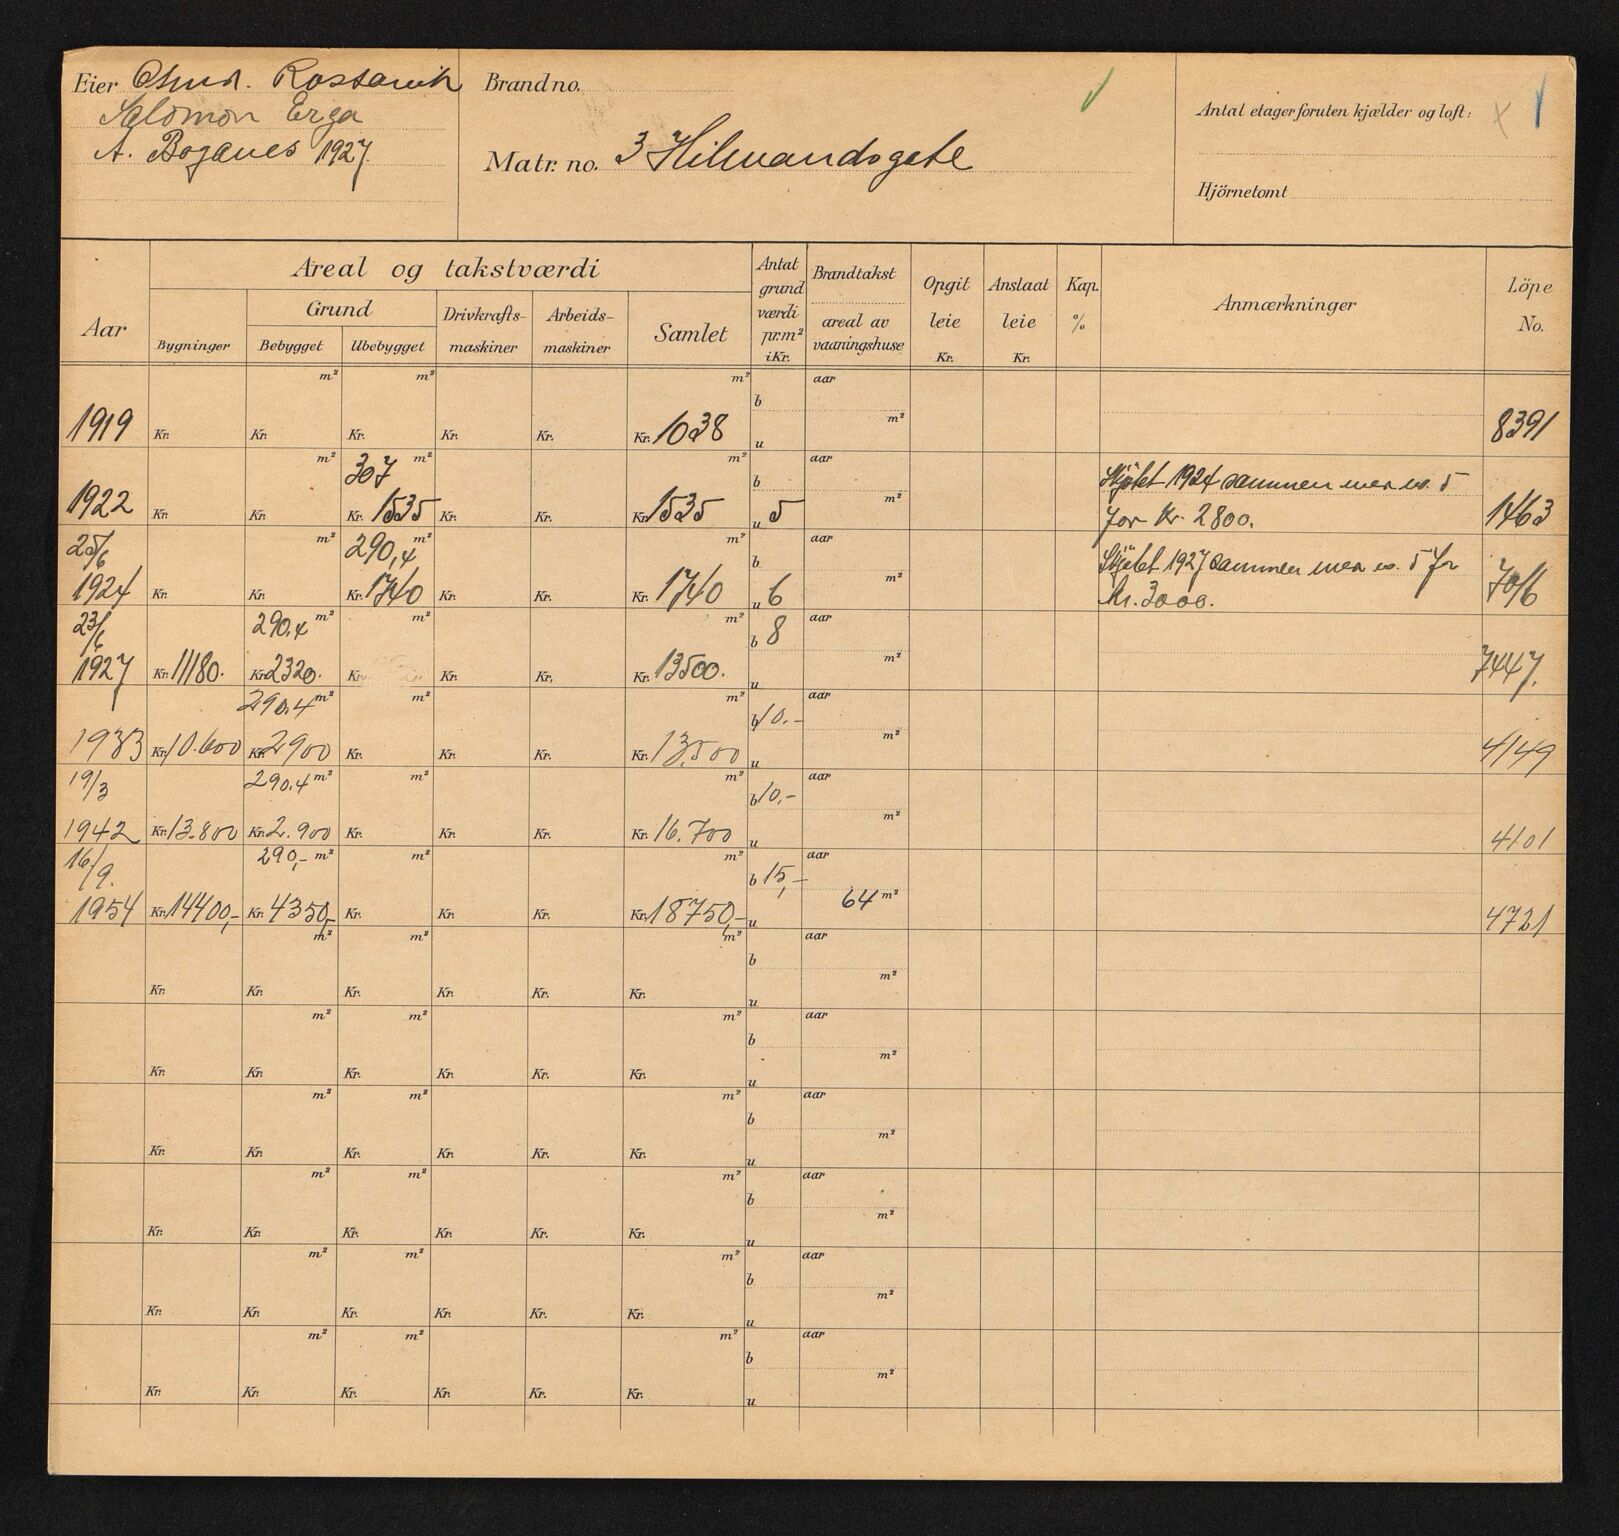 Eier Osmd. Rossavik
Salomon Erga
A. Boganes 1927.
Brand no.
Matr. no. 3 Hilvandsgate
Antal etager foruten kjælder og loft: x 1
Hjörnetomt
Aar
Areal og takstværdi
Grund
Bygninger Bebygget Ubebygget Drivkrafts-maskiner Arbeids-maskiner Samlet
Antat grund værdi pr. m² i Kr.
Brandtakst areal av vaaningshuse
Opgit leie Kr.
Anslaat leie Kr.
Kap. %
Anmærkninger
Löpe No.
m² m² m² b aar
1919 Kr. Kr. Kr. Kr. Kr. Kr. 1038 u m² 8391
m² 307 m² m² b aar Skjötet 1924 sammen med no. 5
1922 Kr. Kr. Kr. 1535 Kr. Kr. Kr. 1535 u 5 m² for Kr. 2800. 1463
25/6 m² 290,4 m² m² b aar Skjötet 1927 sammen med no. 5 for
1924 Kr. Kr. Kr. 1740 Kr. Kr. Kr. 1740 u 6 m² Kr. 3000. 7016
23/6 290.4 m² m² m² b 8 aar
1927 Kr. 11180. Kr. 2320. Kr. Kr. Kr. Kr. 13500. u m² 7447.
290.4 m² m² m² b 10.- aar
1933 Kr. 10.600 Kr. 2900 Kr. Kr. Kr. Kr. 13.500 u m² 4149
19/3 290.4 m² m² m² b 10,- aar
1942 Kr. 13.800 Kr. 2.900 Kr. Kr. Kr. Kr. 16.700 u m² 4101
16/9. 290,- m² m² m² b 15,- aar
1954 Kr. 14400,- Kr. 4350,- Kr. Kr. Kr. Kr. 18750,- u 64 m² 4721
m² m² m² b aar
Kr. Kr. Kr. Kr. Kr. Kr. u m²
m² m² m² b aar
Kr. Kr. Kr. Kr. Kr. Kr. u m²
m² m² m² b aar
Kr. Kr. Kr. Kr. Kr. Kr. u m²
m² m² m² b aar
Kr. Kr. Kr. Kr. Kr. Kr. u m²
m² m² m² b aar
Kr. Kr. Kr. Kr. Kr. Kr. u m²
m² m² m² b aar
Kr. Kr. Kr. Kr. Kr. Kr. u m²